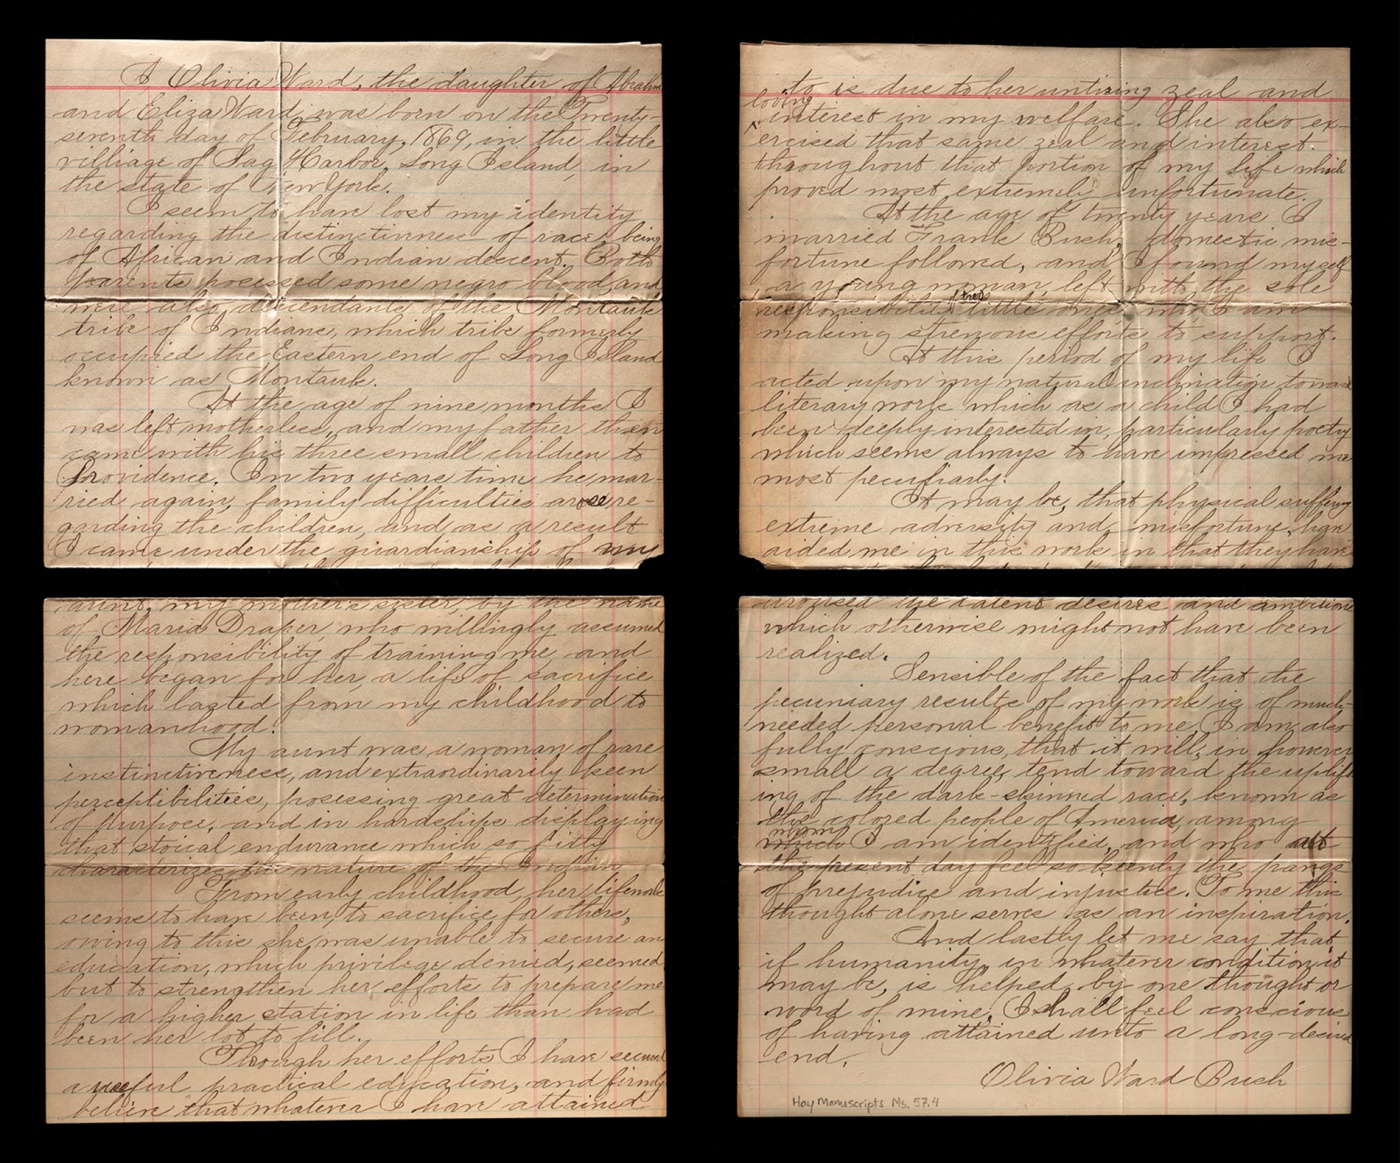 I Olivia Ward, the daughter of Abraham
and Eliza Ward, was born on the Twenty-
seventh day of February, 1869, in the little
villiage of Sag Harbor, Long Island, in
the state of New York.
I seem to have lost my identity
regarding the distinctivness of race, being
of African and Indian descent. Both
parents posessed some negro blood and
were also descendants of the Montauk
tribe of Indians, which tribe formerly
occupied the Eastern end of Long Island
known as Montauk.
At the age of nine months I
was left motherless, and my father then
came with his three small children to
Providence. In two years time he mar-
ried again, family difficulties arose, re-
garding the children, and as a result
I came under the guardianship of my
aunt, my mother's sister, by the name
of Maria Draper, who willingly assumed
the responsibility of training me, and
here began for her, a life of sacrifice
which lasted from my childhood to
womanhood.
My aunt was a woman of rare
instinctiveness, and extraordinarily keen
perceptibilities, posessing great determination
of purpose, and in hardships displaying
that stoical endurance which so fitly
characterizes the nature of the Indian.
From early childhood, her lifework
seems to have been, to sacrifice for others,
owing to this she was unable to secure an
education, which privilege denied, seemed
but to strengthen her efforts to prepare me
for a higher station in life than had
been her lot to fill.
Through her efforts I have secured
a useful practical education, and firmly
believe that whatever I have attained
to is due to her untiring zeal and
loving
interest in my welfare. She also ex-
ercised that same zeal and interest
throughout that portion of my life which
proved most extremely unfortunate.
At the age of twenty years I
married Frank Bush, domestic mis-
fortune followed, and I found myself
a young woman, left with the sole
responsibility two little ones who I am
making strenuous efforts to support.
At this period of my life I
acted upon my natural inclination toward
literary work which as a child I had
been deeply interested in, particularly poetry
which seems always to have impressed me
most peculiarly.
It may be, that physical suffering
extreme adversity and misfortune, have
aided me in this work in that they have
aroused the latent desires and ambitions
which otherwise might not have been
realized.
Sensible of the fact that the
pecuniary results of my work is of much-
needed personal benefit to me, I am also
fully conscious, that it will, in however
small a degree, tend toward the uplift-
ing of the dark-skinned race, known as
the colored people of America, among
whom
which I am identified, and who at
the present day feel so keenly the pangs
of prejudice and injustice. To me this
thought alone serves as an inspiration.
And lastly let me say that
if humanity, in whatever condition it
may be, is helped by one thought or
word of mine, I shall feel conscious
of having attained unto a long-desired
end.
Olivia Ward Bush
Hay Manuscripts Ms. 57.4